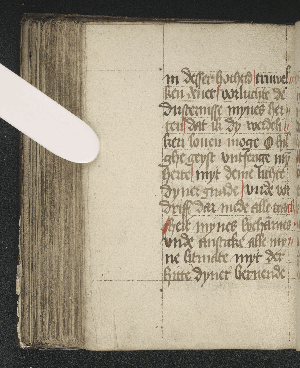 in desser hochtid truwel
ken vnes vorluchte de
dusternisse mynes her
ten dat ik dy werdich
ken louen moge O hil
ghe geyst vntfenge my
herte myt deme lichte
dyner gnade vnde vor
driff dar mede alle
mynes lychames
vnde entsteke alle my
ne litmate myt der
hitte dyner bernende